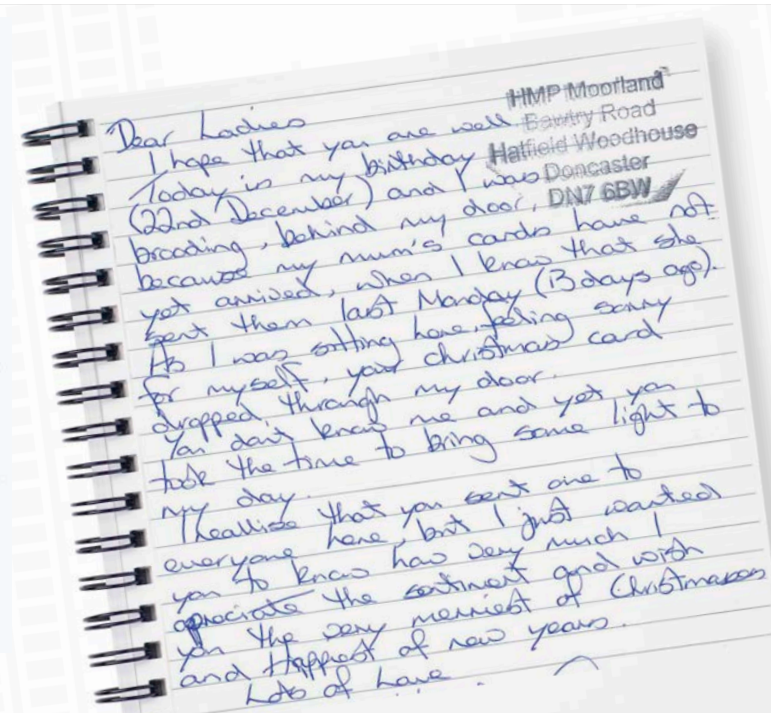 HMP Moorland
Bawtry Road
Hatfield Woodhouse
Doncaster
DN7 6BW
Dear Ladies
I hope that you are well
Today is my birthday
(22nd December) and I was
brooding, behind my door,
because my mum's cards have not
yet arrived, when I know that she
sent them last Monday (13 days ago).
As I was sitting here, feeling sorry
for myself, your christmas card
dropped through my door.
You don't know me and yet you
took the time to bring some light to
my day.
I reallise that you sent one to
everyone here, but I just wanted
you to know how very much I
apreciate the sentiment and wish
you the very merriest of Christmases
and Happiest of new years.
Lots of Love